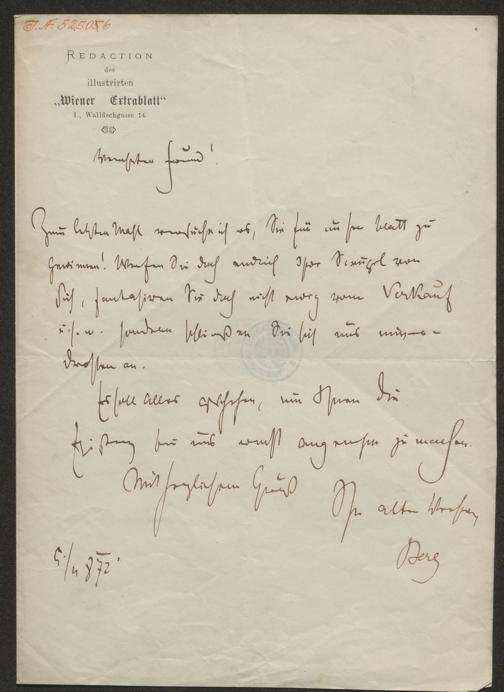 J.N. 525056
REDACTION
des
illustrirten
„Wiener Extrablatt“
I., Wallfischgasse 14.
Freund!
Zum letzten Mahl versuche ich es, Sie für unser Blatt zu
gewinnen! Werfen Sie doch endlich Ihre Scrupel von
sich, fantasiren Sie doch nicht ewig vom Verkauf
u.s.w. sondern schließen Sie sich uns
an.
Es soll Alles geschehen, um Ihnen die
Existenz bei uns recht angenehm zu machen.
Mit herzlichem Gruß
Ihr alter
Berg